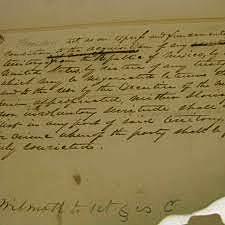 that as an express and fundamental
condition to the acquisition of any
territory from the Republic of Mexico by
the United States, by virtue of any treaty
which may be negotiated between them,
and to the use by the Executive of the moneys
herein appropriated, neither slavery
nor involuntary servitude shall
exist in any part of said territory,
for crime whereof the party shall be
duly convicted.
Wilmot